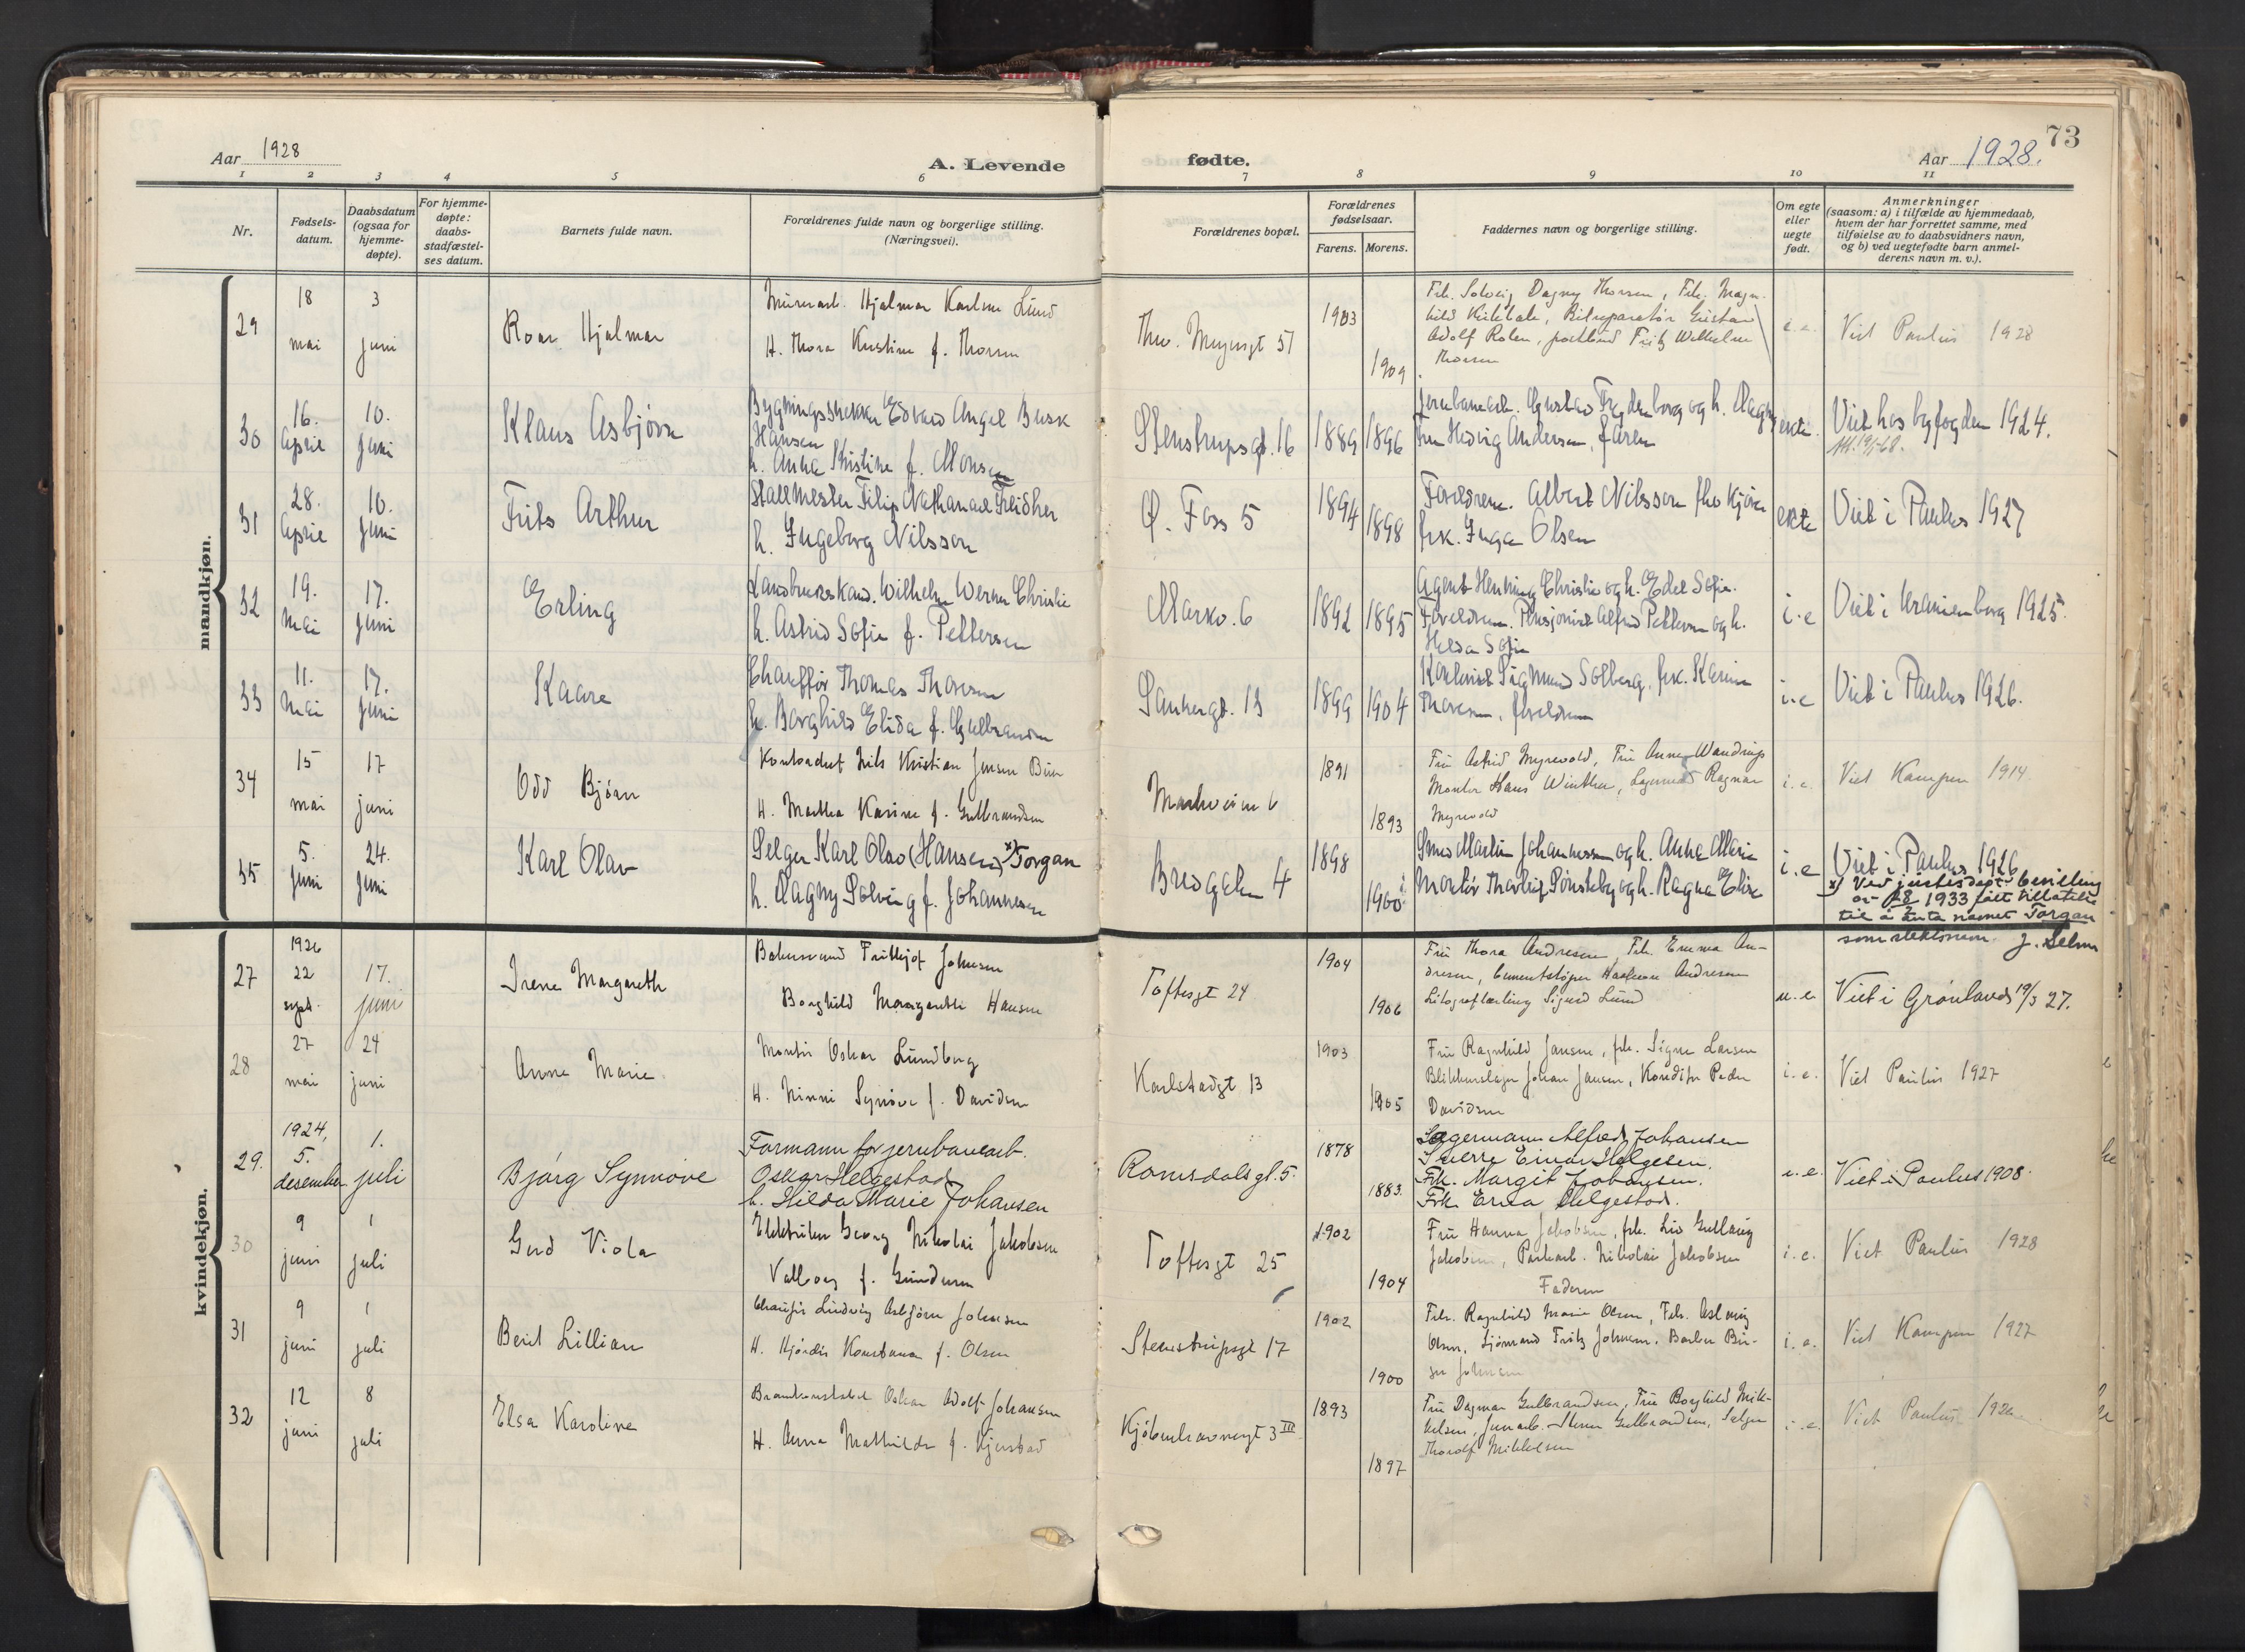 73
Aar 1928
A. Levende
fødte.
Aar 1928.
1 2 3 4 5 6 7 8 9 10 11
Nr.
Fødsels-
datum.
Daabsdatum
(ogsaa for
hjemme-
døpte).
For hjemme-
døpte:
daabs-
stadfæstel-
ses datum.
Barnets fulde navn.
Forældrenes fulde navn og borgerlige stilling.
(Næringsvei).
Forældrenes bopæl.
Forældrenes
fødselsaar.
Farens. Morens.
Faddernes navn og borgerlige stilling.
Om egte
eller
uegte
født.
Anmerkninger
(saasom: a) i tilfælde av hjemmedaab,
hvem der har forrettet samme, med
tilføielse av to daabsvidners navn,
og b) ved uegtefødte barn anmel-
derens navn m. v.).
mandkjøn.
29
18
mai
3
juni
Roar Hjalmar
Hjalmar Karlsen Lund
H. Thora Kristine f. Thorsen
Thv. Meyersgt 51
1903
1909
Frk. Solveig Dagny Thorsen, Frk. Magn-
hild Bilreparatør Gustav
Adolf Rolen, Fritz Wilhelm
Thorsen
i.e.
Viet Paulus 1928
30
16.
April
10.
Juni
Klaus Asbjørn
Edvard Angel Busk
Hansen
h. Anna Kristine f. Monsen
Stenstrupsgt. 16
1889
1896
Jernbanearb. Gustav Frydenborg og h. Dagny
Fru Hedvig Andersen, faren
ekte.
Viet hos byfogden 1924.
31
28.
April
10.
Juni
Frits Arthur
Stallmester Filip Nathanael Freidher
h. Ingeborg Nilsson
Ø. Foss 5
1894
1898
Foreldrene. Albert Nilsson
frk. Inga Olsen
ekte
Viet i Paulus 1927
32
19.
Mai
17.
Juni
Erling
Landbrukskand. Wilhelm Werner Christie
h. Astrid Sofie f. Pettersen
Markv. 6
1892
1895
Agent Henning Christie og h. Edel Sofie.
Foreldrene. Pensjonist Alfred Pettersen og h.
Helda Sofie
i.e
Viet i Uranienborg 1925.
33
11.
Mai
17.
Juni
Kaare
Chauffør Thomas Thoresen
h. Borghild Elida f. Gulbrandsen
Sannergt. 13
1899
1904
Sigmund Solberg, frk. Karin
Thoresen, foreldrene
i.e
Viet i Paulus 1926.
34
15
mai
17
juni
Odd Bjørn
Kontorchef Nils Kristian Jensen
H. Martha Karine f. Gulbrandsen
Markveien 6
1891
1893
Fru Astrid Myrevold, Fru Anna Wandrup
Montør Hans Winther, Ragnar
Myrevold
i.e.
Viet Kampen 1914.
35
5.
Juni
24.
Juni
Karl Olav
Selger Karl Olav (Hansen) x) Torgan
h. Dagny Solveig f. Johannesen
Bredgt. 4
1898
1900
Smed Martin Johannessen og h. Anna Marie
Montør Thorleif Sønsteby og h. Ragna Elise
i.e
Viet i Paulus 1926
x) Ved justisdept's bevilling
av 1933 fått tillatelse
til å anta navnet Torgan
som slektsnavn. J. Selm
kvindekjøn.
27
1926
22
sept.
17.
juni
Irene Margareth
Frithjof Johnsen
Borghild Margarethe Hansen
Toftesgt 24
1904
1906
Fru Thora Andresen, Frk. Emma An-
dresen, Cementstøper Andresen
Litograflærling Sigurd Lund
u.e.
Viet i Grønland 19/3 27.
28
27
mai
24
juni
Anne Marie
Montør Oskar Lundberg
H. Ninni Synøve f. Davidsen
Karlstadgt 13
1903
1905
Fru Ragnhild Jansen, frk. Signe Larsen
Blikkenslager Johan Jansen, Konditor Peder
Davidsen
i.e.
Viet Paulus 1927
29.
1924,
5.
desember
1.
juli
Bjørg Synnøve
Formann for jernbanearb.
Oskar Helgestad
h. Hilda Marie Johansen
Romsdalsgt. 5.
1878
1883.
Lagermann Alfred Johansen
Sverre Einar Helgesen.
Frk. Margit Johansen.
Frk. Erna Helgestad.
u.e.
Viet i Paulus 1908.
30
9
juni
1
juli
Gerd Viola
Elektriker Georg Nikolai Jakobsen
Valborg f. Gundersen
Toftesgt 25
1902
1904
Fru Hanna Jakobsen, frk. Liv Gullaug
Jakobsen, Nikolai Jakobsen
Faderen
i.e.
Viet Paulus 1928
31
9
juni
1
juli
Berit Lillian
Chaufør Ludvig Asbjørn Johnsen
H. Hjørdis Konstance f. Olsen
Stenstrupsgt 17
1902
1900
Frk. Ragnhild Marie Olsen, Frk. Aslaug
Olsen, Sjømand Fritz Johnsen, Barber Bir-
ger Johnsen
i.e.
Viet Kampen 1927
32
12
juni
8
juli
Elsa Karoline
Brandkonstabel Oskar Adolf Johansen
H. Anna Mathilde f. Kjenstad
Kjøbenhavnergt 3 III
1893
1897
Fru Dagmar Gulbrandsen, Fru Borghild Mik-
kelsen, Gulbrandsen, Selger
Thorolf Mikkelsen
i.e.
Viet Paulus 1926